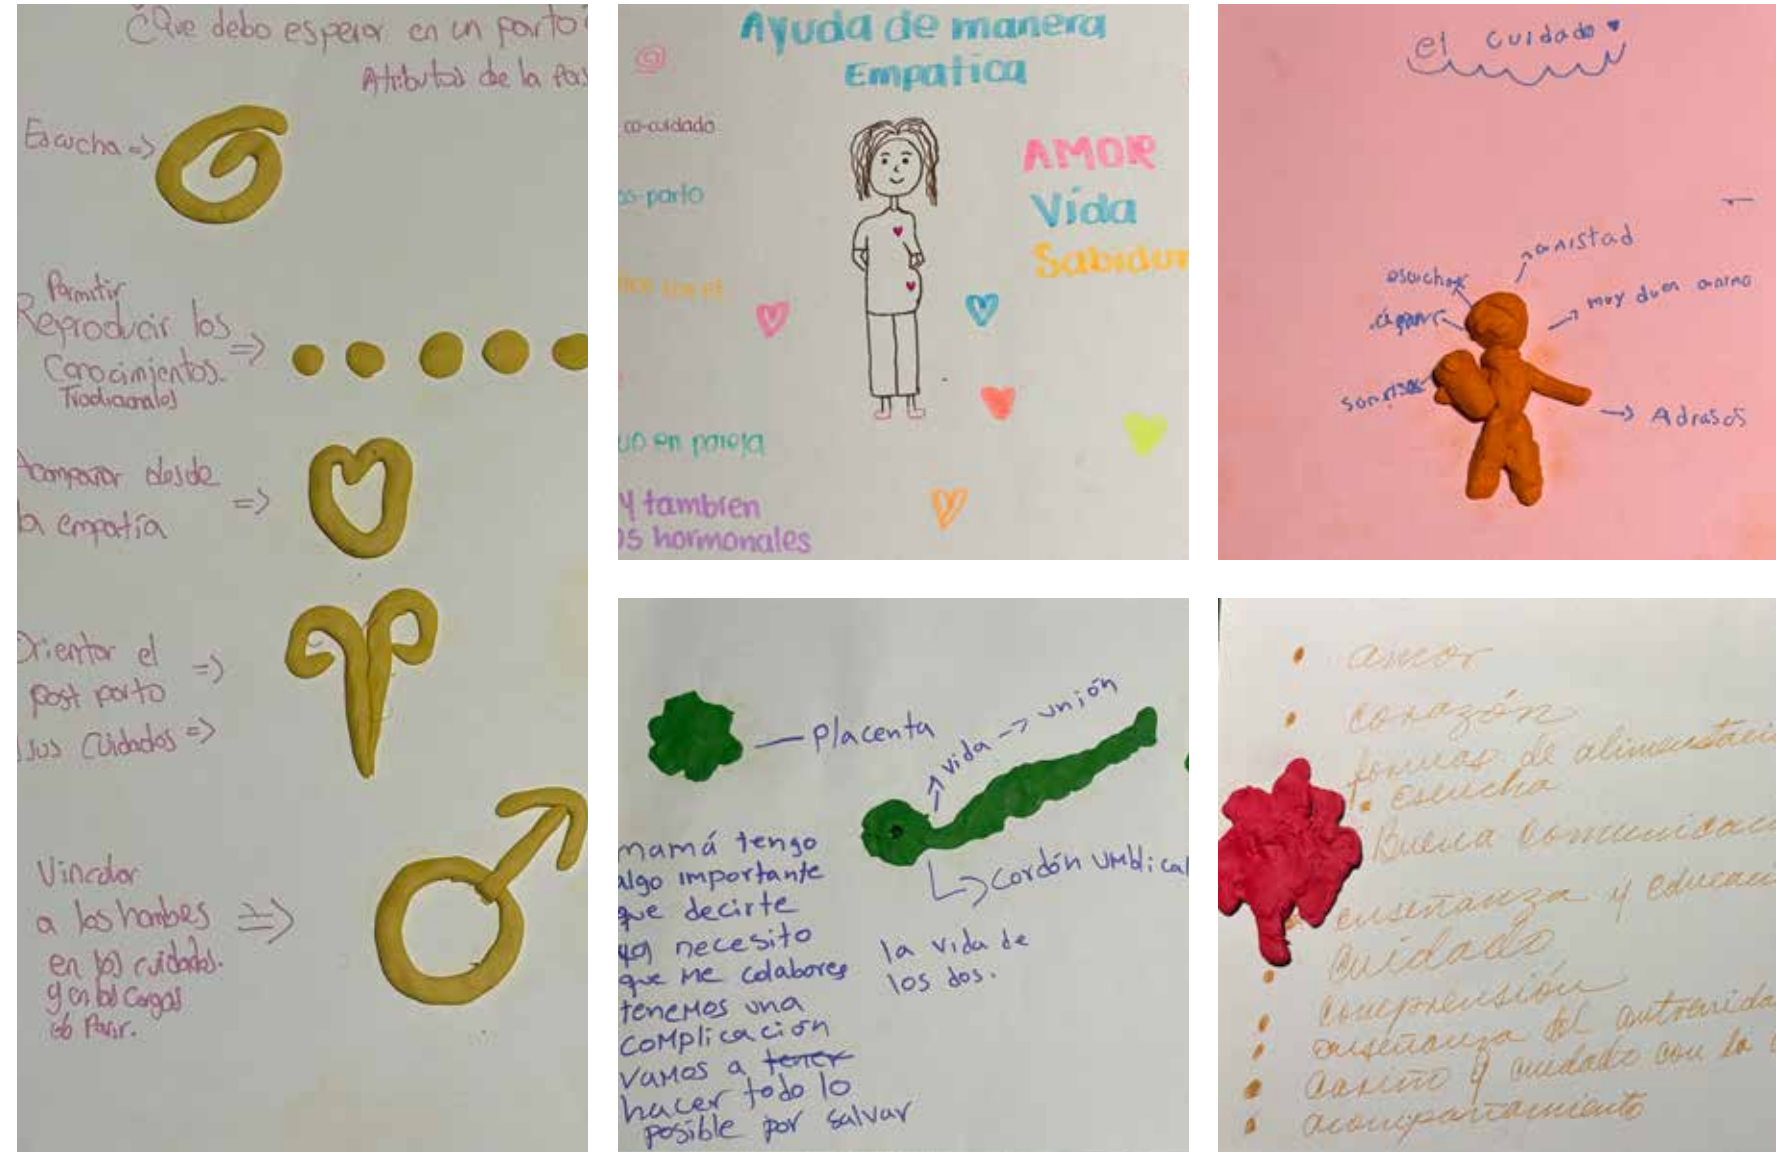 ¿Que debo esperar en un parto?
Atributos de la
Escucha =>
Permitir
Reproducir los
Conocimientos. =>
Tradicionales
Acompañar desde
la empatía =>
Orientar el =>
post parto
sus Cuidados =>
Vincular
a los hombres =>
en los cuidados.
y en las Cargas
de Parir.
Ayuda de manera
Empatica
co-cuidado
os-parto
AMOR
Vida
Sabidur
uo en pareja
Y tambien
os hormonales
el cuidado
amistad
escuchar
muy duen animo
sonrisas
Adrasos
Placenta
vida → unión
cordón umblical
mamá tengo
algo importante
que decirte
necesito
que me colabores
tenemos una
complicación
vamos a tener
hacer todo lo
posible por salvar
la vida de
los dos.
• amor
• corazón
formas de alimentaci
• escucha
Buena comunicac
enseñanza y educaci
cuidado
comprensión
enseñanza del autocuida
cariño y cuidado con la
acompañamiento